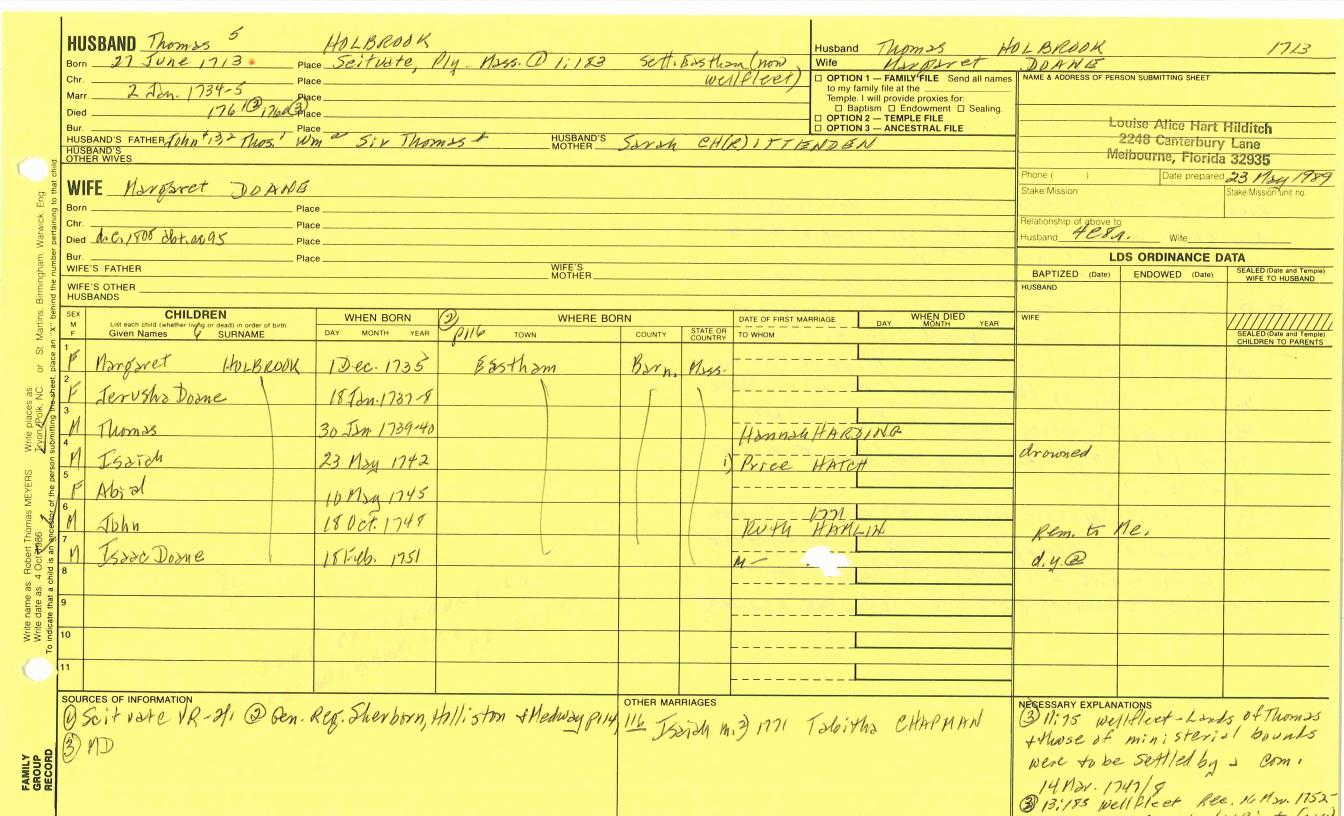 HUSBAND Thomas 5 HOLBROOK
Born 27 June 1713 Place Scituate, Ply. Mass. ① 1:183 Sett. Eastham (now
Chr. Place wellfleet)
Marr 2 Jan. 1734-5 Place
Died 1761② 1760③ Place
Bur. Place
HUSBAND'S FATHER John 4,3,2 Thos.1 Wm Sir Thomas HUSBAND'S MOTHER Sarah CH(R)ITTENDEN
HUSBAND'S OTHER WIVES
WIFE Margaret DOANE
Born Place
Chr. Place
Died Place
Bur. Place
WIFE'S FATHER WIFE'S MOTHER
WIFE'S OTHER HUSBANDS
Husband Thomas HOLBROOK 1713
Wife Margaret DOANE
☐ OPTION 1 — FAMILY FILE Send all names
to my family file at the
Temple. I will provide proxies for:
☐ Baptism ☐ Endowment ☐ Sealing.
☐ OPTION 2 — TEMPLE FILE
☐ OPTION 3 — ANCESTRAL FILE
NAME & ADDRESS OF PERSON SUBMITTING SHEET
Louise Alice Hart Hilditch
2248 Canterbury Lane
Melbourne, Florida 32935
Phone ( ) Date prepared 23 May 1989
Stake/Mission Stake/Mission unit no.
Relationship of above to
Husband Wife
LDS ORDINANCE DATA
BAPTIZED (Date) ENDOWED (Date) SEALED (Date and Temple) WIFE TO HUSBAND
HUSBAND
WIFE
SEALED (Date and Temple) CHILDREN TO PARENTS
SEX M F
CHILDREN
List each child (whether living or dead) in order of birth
Given Names SURNAME
WHEN BORN
DAY MONTH YEAR
② p116
WHERE BORN
TOWN COUNTY STATE OR COUNTRY
DATE OF FIRST MARRIAGE
TO WHOM
WHEN DIED
DAY MONTH YEAR
1 F Margaret HOLBROOK 1 Dec. 1735 Eastham Barn. Mass.
2 F Jerusha Doane 18 Jan. 1737-8
3 M Thomas 30 Jan 1739-40 Hannah HARDING
4 M Isaiah 23 May 1742 1) Price HATCH drowned
5 F Abial 10 May 1745
6 M John 18 Oct. 1748 1771 Ruth HAMLIN Rem. to Me.
7 M Isaac Doane 18 Feb. 1751 M— d.y.②
8
9
10
11
SOURCES OF INFORMATION
① Scituate VR-2f: ② Gen. Reg. Sherborn, Holliston + Medway p114, 116
③ MD
OTHER MARRIAGES
Isaiah m. 2) 1771 Tabitha CHAPMAN
NECESSARY EXPLANATIONS
③ 11:75 Wellfleet-Lands of Thomas
+ those of ministerial bounds
were to be settled by a com.
14 Mar. 1747/8
③ 13:185 Wellfleet Rec. 16 Mar. 1752-
FAMILY GROUP RECORD
Write name as Robert Thomas MEYERS Write places as Tryon, Polk, NC or St Martins, Birmingham, Warwick, Eng
Write date as 4 Oct 1986
To indicate that a child is an ancestor of the person submitting the sheet, place an "X" behind the number pertaining to that child